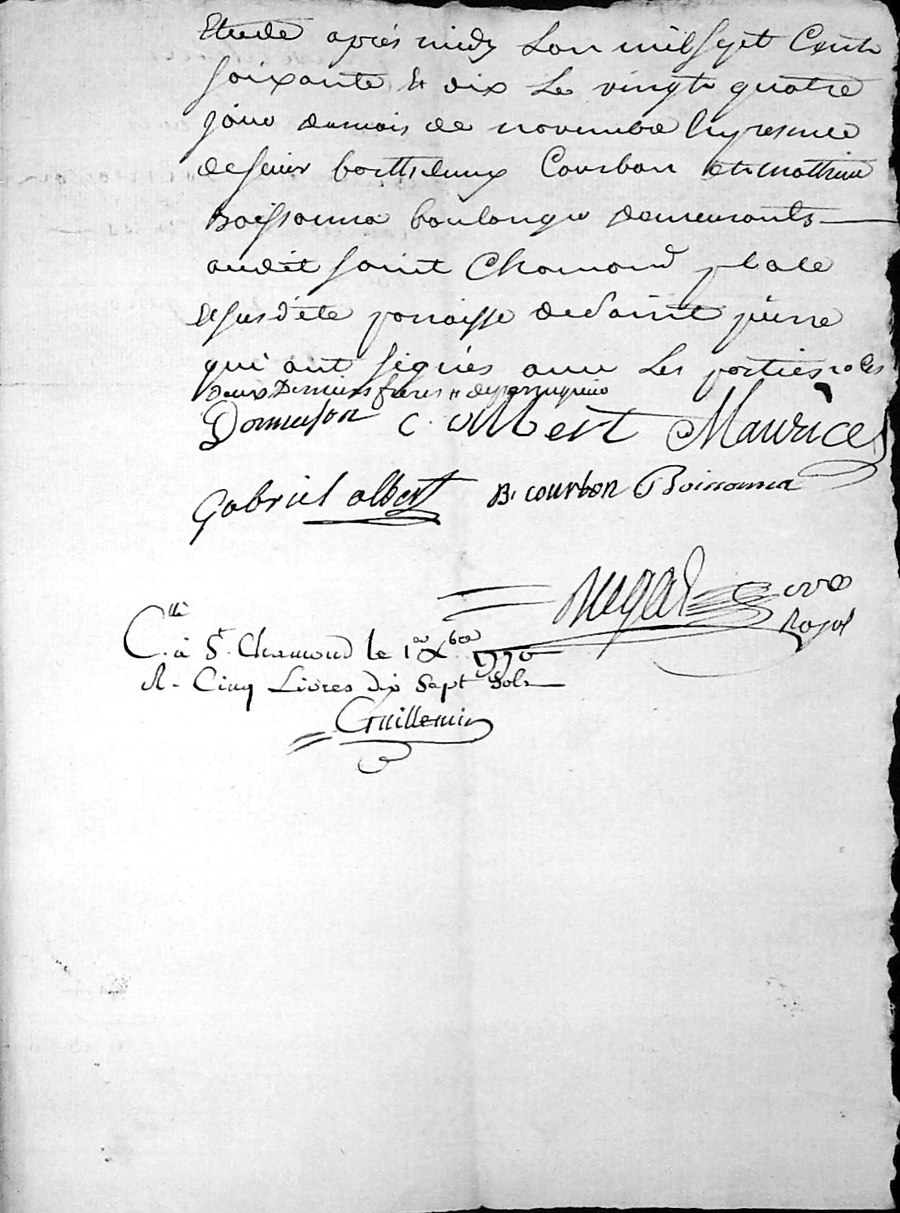 Etude après midy Lan mil sept Cents
soixante & dix Le vingt quatre
jour dumois de novembre En presence
de sieur barthelemy Courbon et mathieu
Boissonna boulanger demeurants
audit saint Chamond place
et paroisse de Saint pierre
qui ont signés avec Les parties
deux Derniers freres
C. Albert Maurice
Gabriel albert B. courbon Boissonna
Royal
C.lé à St. Chamond le 1er Xbre 1770
R. Cinq Livres dix Sept Sols
Guillemin